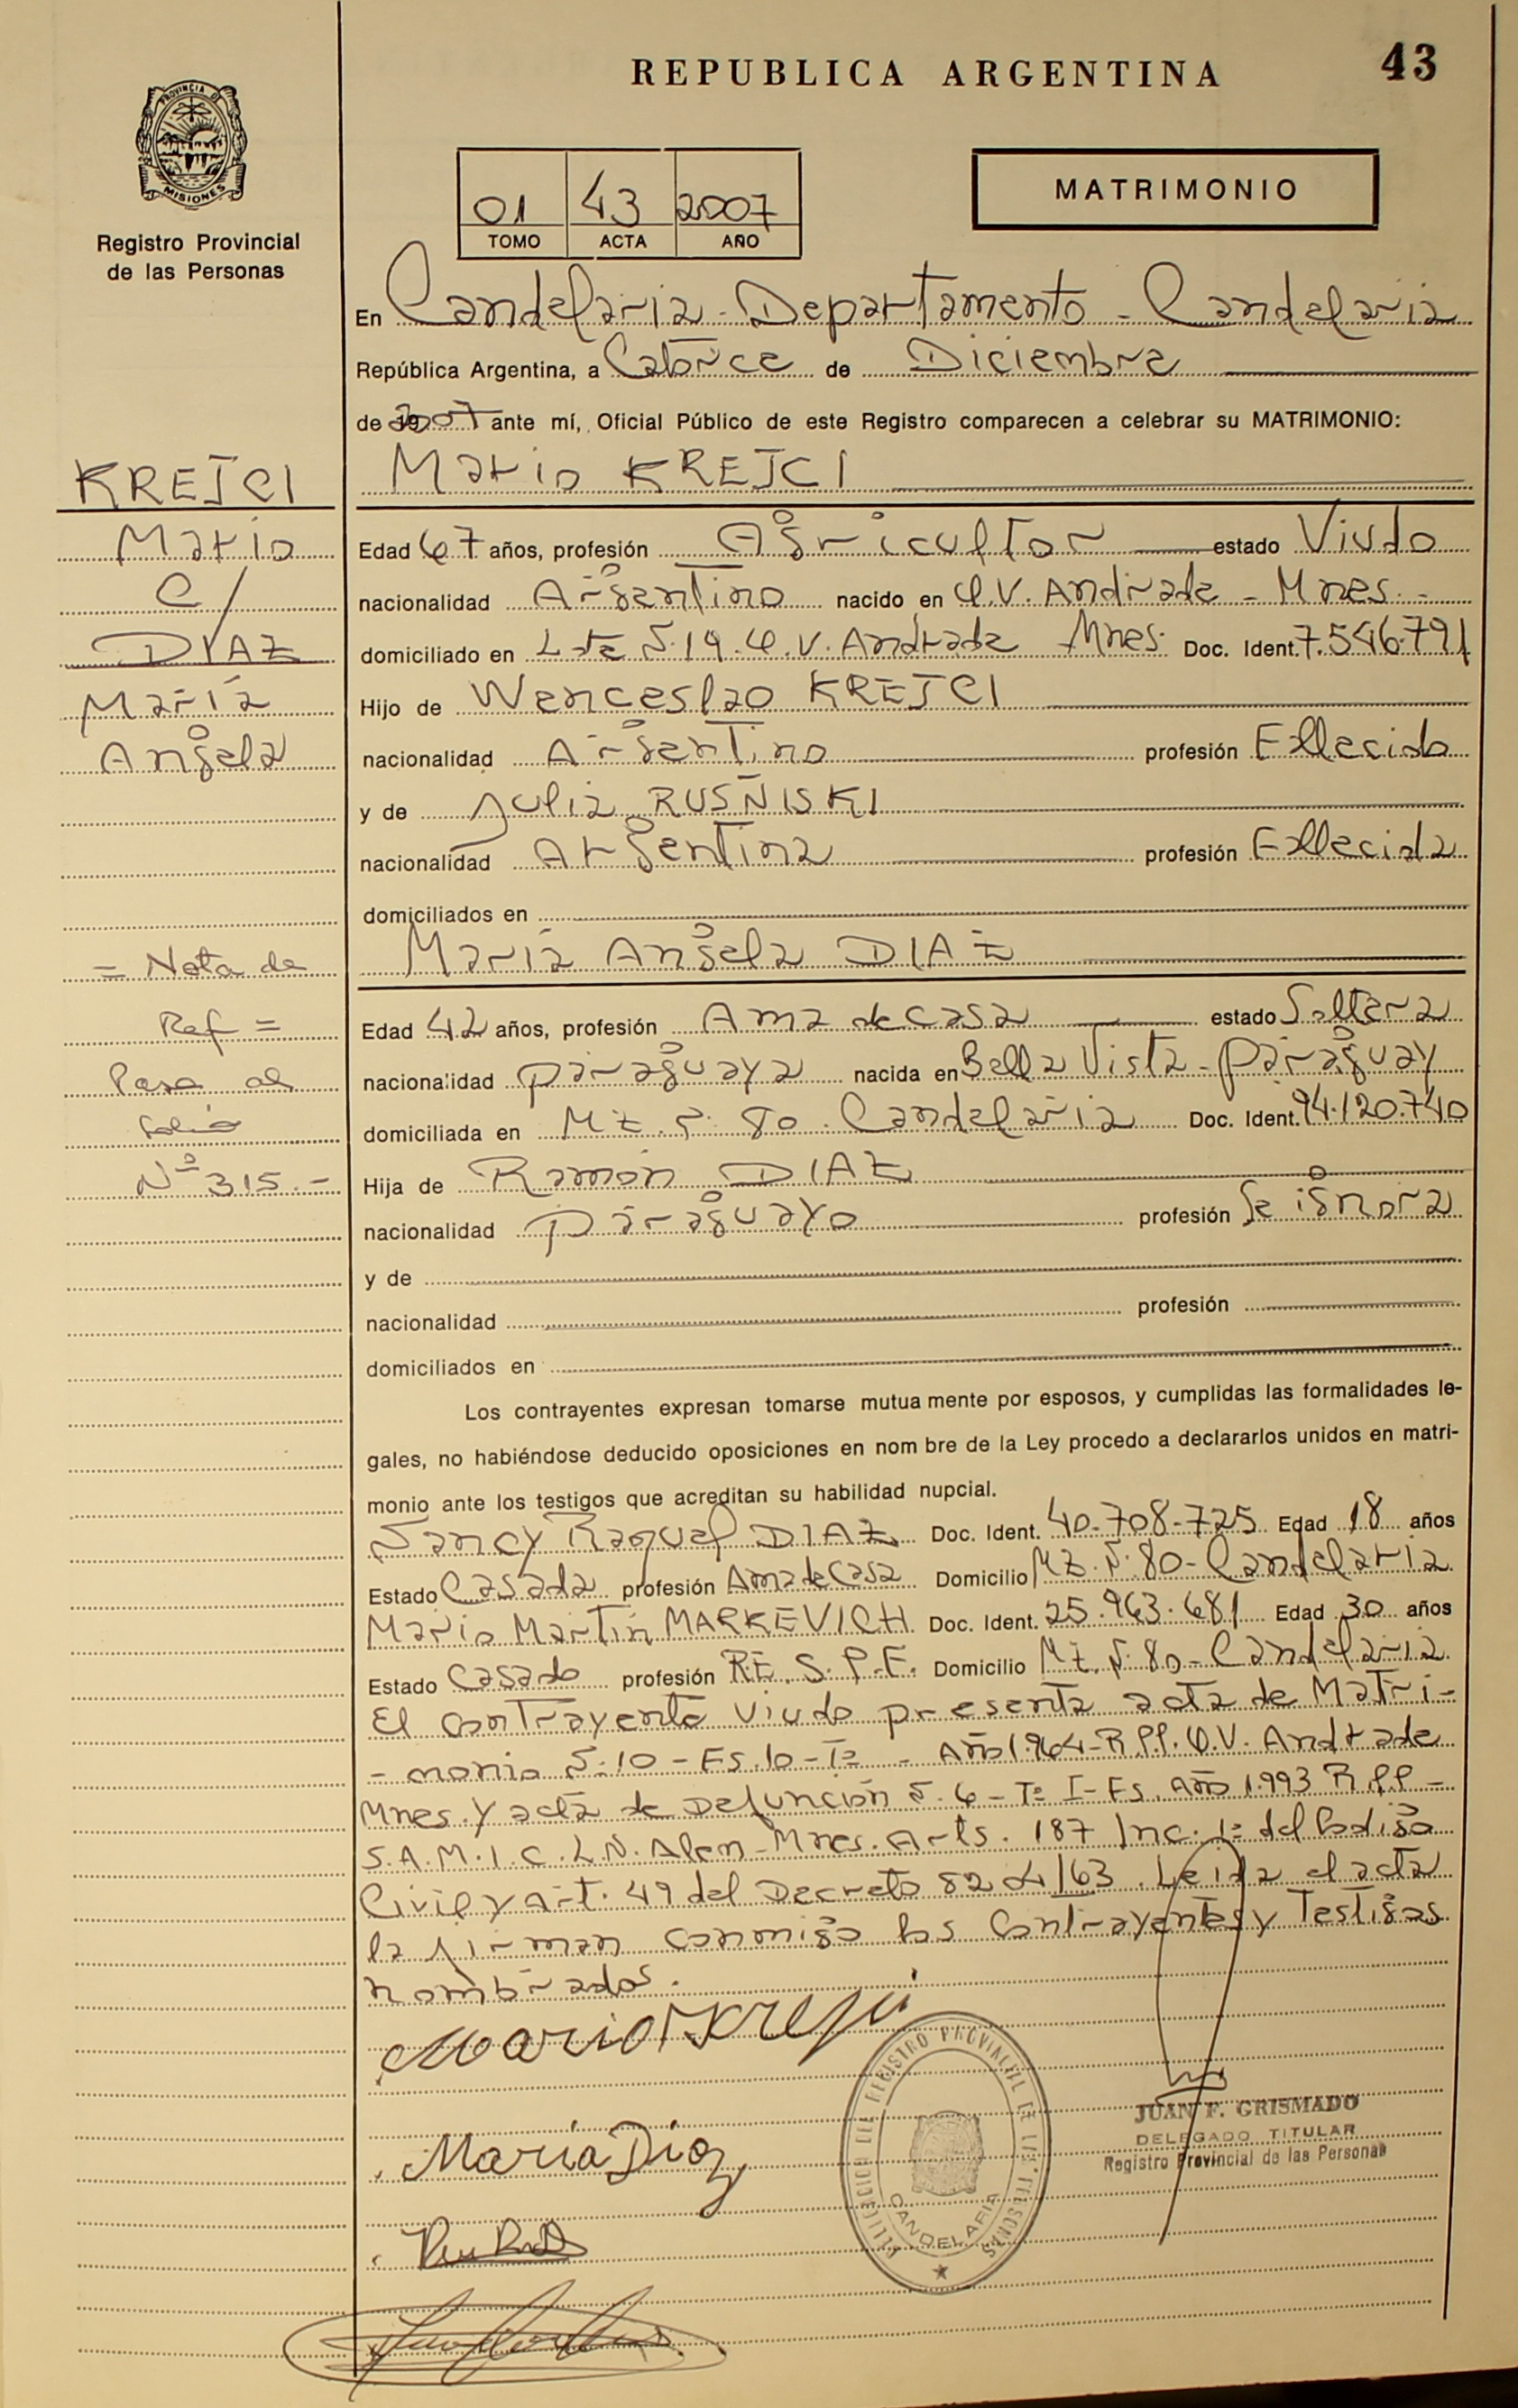 REPUBLICA ARGENTINA
43
PROVINCIA DE
MISIONES
Registro Provincial
de las Personas
01 43 2007
TOMO ACTA AÑO
MATRIMONIO
En Candelaria - Departamento - Candelaria
República Argentina, a Catorce de Diciembre
de 2007 ante mí, Oficial Público de este Registro comparecen a celebrar su MATRIMONIO:
Mario KREJCI
KREJCI
Mario
C/
DIAZ
María
Angela
= Nota de
Ref =
Pasa al
folio
Nº 315.-
Edad 67 años, profesión Agricultor estado Viudo
nacionalidad Argentino nacido en O.V. Andrade - Mnes.-
domiciliado en Lte N. 19. O.V. Andrade Mnes. Doc. Ident. 7.546.791
Hijo de Wenceslao KREJCI
nacionalidad Argentino profesión Fallecido
y de Julia RUSÑISKI
nacionalidad Argentina profesión Fallecida
domiciliados en
María Angela DIAZ
Edad 42 años, profesión Ama de casa estado Soltera
nacionalidad paraguaya nacida en Bella Vista - paraguay
domiciliada en Mz. N. 80. Candelaria Doc. Ident. 94.120.740
Hija de Ramón DIAZ
nacionalidad paraguayo profesión Se ignora
y de
nacionalidad profesión
domiciliados en
Los contrayentes expresan tomarse mutua mente por esposos, y cumplidas las formalidades le-
gales, no habiéndose deducido oposiciones en nom bre de la Ley procedo a declararlos unidos en matri-
monio ante los testigos que acreditan su habilidad nupcial.
Nancy Raquel DIAZ Doc. Ident. 40.708.725 Edad 18 años
Estado Casada profesión Ama de Casa Domicilio Mz. N. 80 - Candelaria
Mario Martín MARKEVICH Doc. Ident. 25.963.681 Edad 30 años
Estado Casado profesión RE. S. P. F. Domicilio Mz. N. 80 - Candelaria
El contrayente Viudo presenta acta de Matri-
- monio N: 10 - Fs. 10 - Tº - Año 1.964 - R.P.P. O.V. Andrade
Mnes. y acta de Defunción N. 6 - Tº I - Fs. Año 1.993 R.P.P -
S.A.M.I.C. L.N. Alem - Mnes. Arts. 187 Inc. 1º del Codigo
Civil y Art. 49 del Decreto 8204/63. Leida el acta
la firman conmigo los Contrayentes y Testigos
nombrados.
Mario Krejci
María Diaz
DELEGACION DEL REGISTRO PROVINCIAL DE LAS PERSONAS
CANDELARIA
JUAN F. GRISMADO
DELEGADO TITULAR
Registro Provincial de las Personas